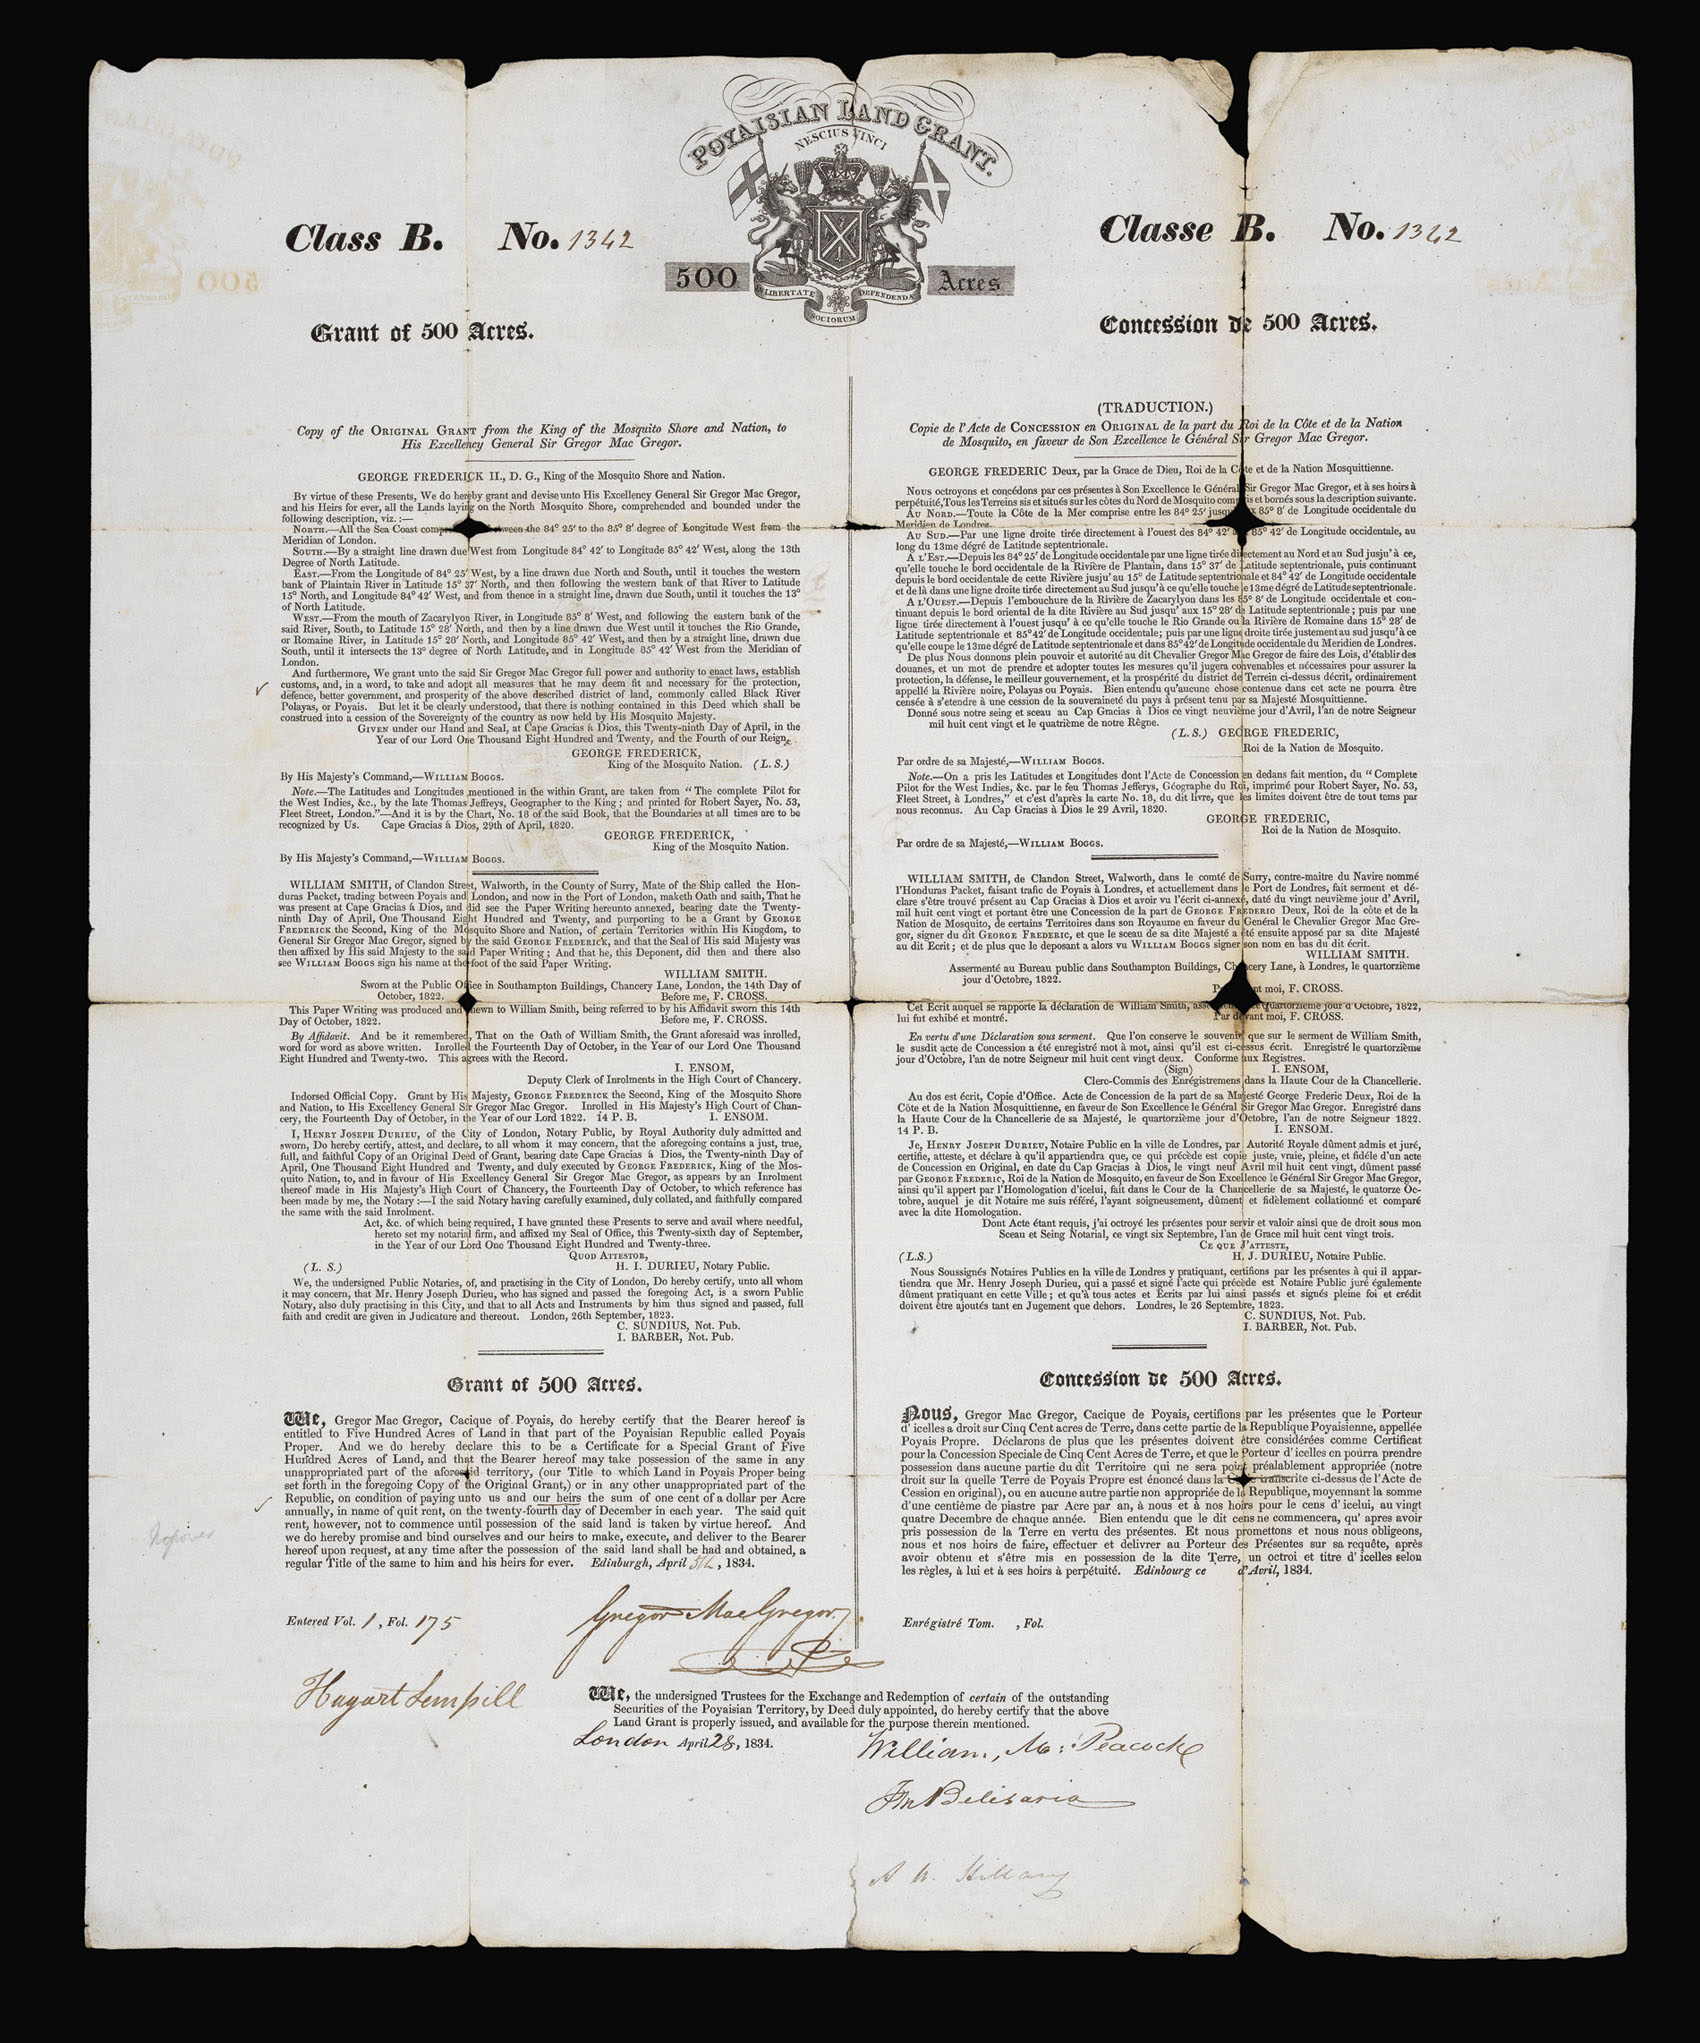 POYAISIAN LAND GRANT.
NESCIUS VINCI
Class B. No. 1342
500 Acres
LIBERTATE DEFENDENDA
SOCIORUM
Classe B. No. 1342
Grant of 500 Acres.
Copy of the ORIGINAL GRANT from the King of the Mosquito Shore and Nation, to
His Excellency General Sir Gregor Mac Gregor.
GEORGE FREDERICK II., D. G., King of the Mosquito Shore and Nation.
BY virtue of these Presents, We do hereby grant and devise unto His Excellency General Sir Gregor Mac Gregor,
and his Heirs for ever, all the Lands laying on the North Mosquito Shore, comprehended and bounded under the
following description, viz.:—
NORTH.—All the Sea Coast between the 84° 25′ to the 85° 8′ degree of Longitude West from the
Meridian of London.
SOUTH.—By a straight line drawn due West from Longitude 84° 42′ to Longitude 85° 42′ West, along the 13th
Degree of North Latitude.
EAST.—From the Longitude of 84° 25′ West, by a line drawn due North and South, until it touches the western
bank of Plaintain River in Latitude 15° 37′ North, and then following the western bank of that River to Latitude
15° North, and Longitude 84° 42′ West, and from thence in a straight line, drawn due South, until it touches the 13°
of North Latitude.
WEST.—From the mouth of Zacarylyon River, in Longitude 85° 8′ West, and following the eastern bank of the
said River, South, to Latitude 15° 28′ North, and then by a line drawn due West until it touches the Rio Grande,
or Romaine River, in Latitude 15° 28′ North, and Longitude 85° 42′ West, and then by a straight line, drawn due
South, until it intersects the 13° degree of North Latitude, and in Longitude 85° 42′ West from the Meridian of
London.
And furthermore, We grant unto the said Sir Gregor Mac Gregor full power and authority to enact laws, establish
customs, and, in a word, to take and adopt all measures that he may deem fit and necessary for the protection,
defence, better government, and prosperity of the above described district of land, commonly called Black River
Polayas, or Poyais. But let it be clearly understood, that there is nothing contained in this Deed which shall be
construed into a cession of the Sovereignty of the country as now held by His Mosquito Majesty.
GIVEN under our Hand and Seal, at Cape Gracias á Dios, this Twenty-ninth Day of April, in the
Year of our Lord One Thousand Eight Hundred and Twenty, and the Fourth of our Reign,
GEORGE FREDERICK,
King of the Mosquito Nation. (L. S.)
By His Majesty's Command,—WILLIAM BOGGS.
Note.—The Latitudes and Longitudes mentioned in the within Grant, are taken from "The complete Pilot for
the West Indies, &c., by the late Thomas Jeffreys, Geographer to the King; and printed for Robert Sayer, No. 53,
Fleet Street, London."—And it is by the Chart, No. 18 of the said Book, that the Boundaries at all times are to be
recognized by Us. Cape Gracias á Dios, 29th of April, 1820.
GEORGE FREDERICK,
King of the Mosquito Nation.
By His Majesty's Command,—WILLIAM BOGGS.
WILLIAM SMITH, of Clandon Street, Walworth, in the County of Surry, Mate of the Ship called the Hon-
duras Packet, trading between Poyais and London, and now in the Port of London, maketh Oath and saith, That he
was present at Cape Gracias á Dios, and did see the Paper Writing hereunto annexed, bearing date the Twenty-
ninth Day of April, One Thousand Eight Hundred and Twenty, and purporting to be a Grant by GEORGE
FREDERICK the Second, King of the Mosquito Shore and Nation, of certain Territories within His Kingdom, to
General Sir Gregor Mac Gregor, signed by the said GEORGE FREDERICK, and that the Seal of His said Majesty was
then affixed by His said Majesty to the said Paper Writing; And that he, this Deponent, did then and there also
see WILLIAM BOGGS sign his name at the foot of the said Paper Writing.
WILLIAM SMITH.
Sworn at the Public Office in Southampton Buildings, Chancery Lane, London, the 14th Day of
October, 1822. Before me, F. CROSS.
This Paper Writing was produced and shewn to William Smith, being referred to by his Affidavit sworn this 14th
Day of October, 1822. Before me, F. CROSS.
By Affidavit. And be it remembered, That on the Oath of William Smith, the Grant aforesaid was inrolled,
word for word as above written. Inrolled the Fourteenth Day of October, in the Year of our Lord One Thousand
Eight Hundred and Twenty-two. This agrees with the Record.
I. ENSOM,
Deputy Clerk of Inrolments in the High Court of Chancery.
Indorsed Official Copy. Grant by His Majesty, GEORGE FREDERICK the Second, King of the Mosquito Shore
and Nation, to His Excellency General Sir Gregor Mac Gregor. Inrolled in His Majesty's High Court of Chan-
cery, the Fourteenth Day of October, in the Year of our Lord 1822. 14 P. B. I. ENSOM.
I, HENRY JOSEPH DURIEU, of the City of London, Notary Public, by Royal Authority duly admitted and
sworn, Do hereby certify, attest, and declare, to all whom it may concern, that the aforegoing contains a just, true,
full, and faithful Copy of an Original Deed of Grant, bearing date Cape Gracias á Dios, the Twenty-ninth Day of
April, One Thousand Eight Hundred and Twenty, and duly executed by GEORGE FREDERICK, King of the Mos-
quito Nation, to, and in favour of His Excellency General Sir Gregor Mac Gregor, as appears by an Inrolment
hereof made in His Majesty's High Court of Chancery, the Fourteenth Day of October, to which reference has
been made by me, the Notary:—I the said Notary having carefully examined, duly collated, and faithfully compared
the same with the said Inrolment.
Act, &c. of which being required, I have granted these Presents to serve and avail where needful,
hereto set my notarial firm, and affixed my Seal of Office, this Twenty-sixth day of September,
in the Year of our Lord One Thousand Eight Hundred and Twenty-three.
QUOD ATTESTOR,
(L. S.) H. I. DURIEU, Notary Public.
We, the undersigned Public Notaries, of, and practising in the City of London, Do hereby certify, unto all whom
it may concern, that Mr. Henry Joseph Durieu, who has signed and passed the foregoing Act, is a sworn Public
Notary, also duly practising in this City, and that to all Acts and Instruments by him thus signed and passed, full
faith and credit are given in Judicature and thereout. London, 26th September, 1823.
C. SUNDIUS, Not. Pub.
I. BARBER, Not. Pub.
Grant of 500 Acres.
We, Gregor Mac Gregor, Cacique of Poyais, do hereby certify that the Bearer hereof is
entitled to Five Hundred Acres of Land in that part of the Poyaisian Republic called Poyais
Proper. And we do hereby declare this to be a Certificate for a Special Grant of Five
Hundred Acres of Land, and that the Bearer hereof may take possession of the same in any
unappropriated part of the aforesaid territory, (our Title to which Land in Poyais Proper being
set forth in the foregoing Copy of the Original Grant,) or in any other unappropriated part of the
Republic, on condition of paying unto us and our heirs the sum of one cent of a dollar per Acre
annually, in name of quit rent, on the twenty-fourth day of December in each year. The said quit
rent, however, not to commence until possession of the said land is taken by virtue hereof. And
we do hereby promise and bind ourselves and our heirs to make, execute, and deliver to the Bearer
hereof upon request, at any time after the possession of the said land shall be had and obtained, a
regular Title of the same to him and his heirs for ever. Edinburgh, April 5th, 1834.
Entered Vol. 1, Fol. 175
Gregor MacGregor
Hagart Sempill
Concession de 500 Acres.
(TRADUCTION.)
Copie de l'Acte de CONCESSION en ORIGINAL de la part du Roi de la Côte et de la Nation
de Mosquito, en faveur de Son Excellence le Général Sir Gregor Mac Gregor.
GEORGE FREDERIC Deux, par la Grace de Dieu, Roi de la Côte et de la Nation Mosquittienne.
NOUS octroyons et concédons par ces présentes à Son Excellence le Général Sir Gregor Mac Gregor, et à ses hoirs à
perpétuité, Tous les Terreins sis et situés sur les côtes du Nord de Mosquito compris et bornés sous la description suivante.
AU NORD.—Toute la Côte de la Mer comprise entre les 84° 25′ 85° 8′ de Longitude occidentale du
Meridien de Londres.
AU SUD.—Par une ligne droite tirée directement à l'ouest des 84° 42′ 85° 42′ de Longitude occidentale, au
long du 13me dégré de Latitude septentrionale.
A L'EST.—Depuis les 84° 25′ de Longitude occidentale par une ligne tirée directement au Nord et au Sud jusju' à ce,
qu'elle touche le bord occidentale de la Rivière de Plantain, dans 15° 37′ de Latitude septentrionale, puis continuant
depuis le bord occidentale de cette Rivière jusju' au 15° de Latitude septentrionale et 84° 42′ de Longitude occidentale
et de là dans une ligne droite tirée directement au Sud jusqu'à ce qu'elle touche le 13me dégré de Latitude septentrionale.
A L'OUEST.—Depuis l'embouchure de la Rivière de Zacarylyon dans les 85° 8′ de Longitude occidentale et con-
tinuant depuis le bord oriental de la dite Rivière au Sud jusqu' aux 15° 28′ de Latitude septentrionale; puis par une
ligne tirée directement à l'ouest jusqu' à ce qu'elle touche le Rio Grande ou la Rivière de Romaine dans 15° 28′ de
Latitude septentrionale et 85° 42′ de Longitude occidentale; puis par une ligne droite tirée justement au sud jusqu'à ce
qu'elle coupe le 13me dégré de Latitude septentrionale et dans 85° 42′ de Longitude occidentale du Meridien de Londres.
De plus Nous donnons plein pouvoir et autorité au dit Chevalier Gregor Mac Gregor de faire des Lois, d'établir des
douanes, et un mot de prendre et adopter toutes les mesures qu'il jugera convenables et nécessaires pour assurer la
protection, la défense, le meilleur gouvernement, et la prospérité du district de Terrein ci-dessus décrit, ordinairement
appellé la Rivière noire, Polayas ou Poyais. Bien entendu qu'aucune chose contenue dans cet acte ne pourra être
censée à s'etendre à une cession de la souveraineté du pays à présent tenu par sa Majesté Mosquittienne.
Donné sous notre seing et sceau au Cap Gracias à Dios ce vingt neuvième jour d'Avril, l'an de notre Seigneur
mil huit cent vingt et le quatrième de notre Règne.
(L. S.) GEORGE FREDERIC,
Roi de la Nation de Mosquito.
Par ordre de sa Majesté,—WILLIAM BOGGS.
Note.—On a pris les Latitudes et Longitudes dont l'Acte de Concession en dedans fait mention, du "Complete
Pilot for the West Indies, &c. par le feu Thomas Jefferys, Géographe du Roi, imprimé pour Robert Sayer, No. 53,
Fleet Street, à Londres," et c'est d'après la carte No. 18, du dit livre, que les limites doivent être de tout tems par
nous reconnus. Au Cap Gracias à Dios le 29 Avril, 1820.
GEORGE FREDERIC,
Roi de la Nation de Mosquito.
Par ordre de sa Majesté,—WILLIAM BOGGS.
WILLIAM SMITH, de Clandon Street, Walworth, dans le comté de Surry, contre-maître du Navire nommé
l'Honduras Packet, faisant trafic de Poyais à Londres, et actuellement dans le Port de Londres, fait serment et dé-
clare s'être trouvé présent au Cap Gracias à Dios et avoir vu l'écrit ci-annexé, daté du vingt neuvième jour d' Avril,
mil huit cent vingt et portant être une Concession de la part de GEORGE FREDERIC Deux, Roi de la côte et de la
Nation de Mosquito, de certains Territoires dans son Royaume en faveur du Genéral le Chevalier Gregor Mac Gre-
gor, signer du dit GEORGE FREDERIC, et que le sceau de sa dite Majesté a été ensuite apposé par sa dite Majesté
au dit Ecrit; et de plus que le deposant a alors vu WILLIAM BOGGS signer son nom en bas du dit écrit.
WILLIAM SMITH.
Assermenté au Bureau public dans Southampton Buildings, Chancery Lane, à Londres, le quartorzième
jour d'Octobre, 1822.
moi, F. CROSS.
Cet Ecrit auquel se rapporte la déclaration de William Smith, quartorzième jour d'Octobre, 1822,
lui fut exhibé et montré. Par devant moi, F. CROSS.
En vertu d'une Déclaration sous serment. Que l'on conserve le souvenir que sur le serment de William Smith,
le susdit acte de Concession a été enregistré mot à mot, ainsi qu'il est ci-dessus écrit. Enregistré le quartorzième
jour d'Octobre, l'an de notre Seigneur mil huit cent vingt deux. Conforme aux Registres.
(Sign) I. ENSOM,
Clerc-Commis des Enrégistremens dans la Haute Cour de la Chancellerie.
Au dos est écrit, Copie d'Office. Acte de Concession de la part de sa Majesté George Frederic Deux, Roi de la
Côte et de la Nation Mosquittienne, en faveur de Son Excellence le Général Sir Gregor Mac Gregor. Enregistré dans
la Haute Cour de la Chancellerie de sa Majesté, le quartorzième jour d'Octobre, l'an de notre Seigneur 1822.
14 P. B. I. ENSOM.
Je, HENRY JOSEPH DURIEU, Notaire Public en la ville de Londres, par Autorité Royale dûment admis et juré,
certifie, atteste, et déclare à qu'il appartiendra que, ce qui précède est copie juste, vraie, pleine, et fidéle d'un acte
de Concession en Original, en date du Cap Gracias à Dios, le vingt neuf Avril mil huit cent vingt, dûment passé
par GEORGE FREDERIC, Roi de la Nation de Mosquito, en faveur de Son Excellence le Général Sir Gregor Mac Gregor,
ainsi qu'il appert par l'Homologation d'icelui, fait dans le Cour de la Chancellerie de sa Majesté, le quatorze Oc-
tobre, auquel je dit Notaire me suis référé, l'ayant soigneusement, dûment et fidèlement collationné et comparé
avec la dite Homologation.
Dont Acte étant requis, j'ai octroyé les présentes pour servir et valoir ainsi que de droit sous mon
Sceau et Seing Notarial, ce vingt six Septembre, l'an de Grace mil huit cent vingt trois.
CE QUE J'ATTESTE,
(L.S.) H. J. DURIEU, Notaire Public.
Nous Soussignés Notaires Publics en la ville de Londres y pratiquant, certifions par les présentes à qui il appar-
tiendra que Mr. Henry Joseph Durieu, qui a passé et signé l'acte qui précède est Notaire Public juré également
dûment pratiquant en cette Ville; et qu'à tous actes et Ecrits par lui ainsi passés et signés pleine foi et crédit
doivent être ajoutés tant en Jugement que dehors. Londres, le 26 Septembre, 1823.
C. SUNDIUS, Not. Pub.
I. BARBER, Not. Pub.
Concession de 500 Acres.
Nous, Gregor Mac Gregor, Cacique de Poyais, certifions par les présentes que le Porteur
d' icelles a droit sur Cinq Cent acres de Terre, dans cette partie de la Republique Poyaisienne, appellée
Poyais Propre. Déclarons de plus que les présentes doivent être considérées comme Certificat
pour la Concession Speciale de Cinq Cent Acres de Terre, et que le Porteur d' icelles en pourra prendre
possession dans aucune partie du dit Territoire qui ne sera point préalablement appropriée (notre
droit sur la quelle Terre de Poyais Propre est énoncé dans la transcrite ci-dessus de l'Acte de
Cession en original), ou en aucune autre partie non appropriée de la Republique, moyennant la somme
d'une centième de piastre par Acre par an, à nous et à nos hoirs pour le cens d' icelui, au vingt
quatre Decembre de chaque année. Bien entendu que le dit cens ne commencera, qu' apres avoir
pris possession de la Terre en vertu des présentes. Et nous promettons et nous nous obligeons,
nous et nos hoirs de faire, effectuer et delivrer au Porteur des Présentes sur sa requête, après
avoir obtenu et s'être mis en possession de la dite Terre, un octroi et titre d' icelles selon
les règles, à lui et à ses hoirs à perpétuité. Edinbourg ce d'Avril, 1834.
Enrégistré Tom. , Fol.
We, the undersigned Trustees for the Exchange and Redemption of certain of the outstanding
Securities of the Poyaisian Territory, by Deed duly appointed, do hereby certify that the above
Land Grant is properly issued, and available for the purpose therein mentioned.
London April 28, 1834.
William, M: Peacock
Belisario
Hillary